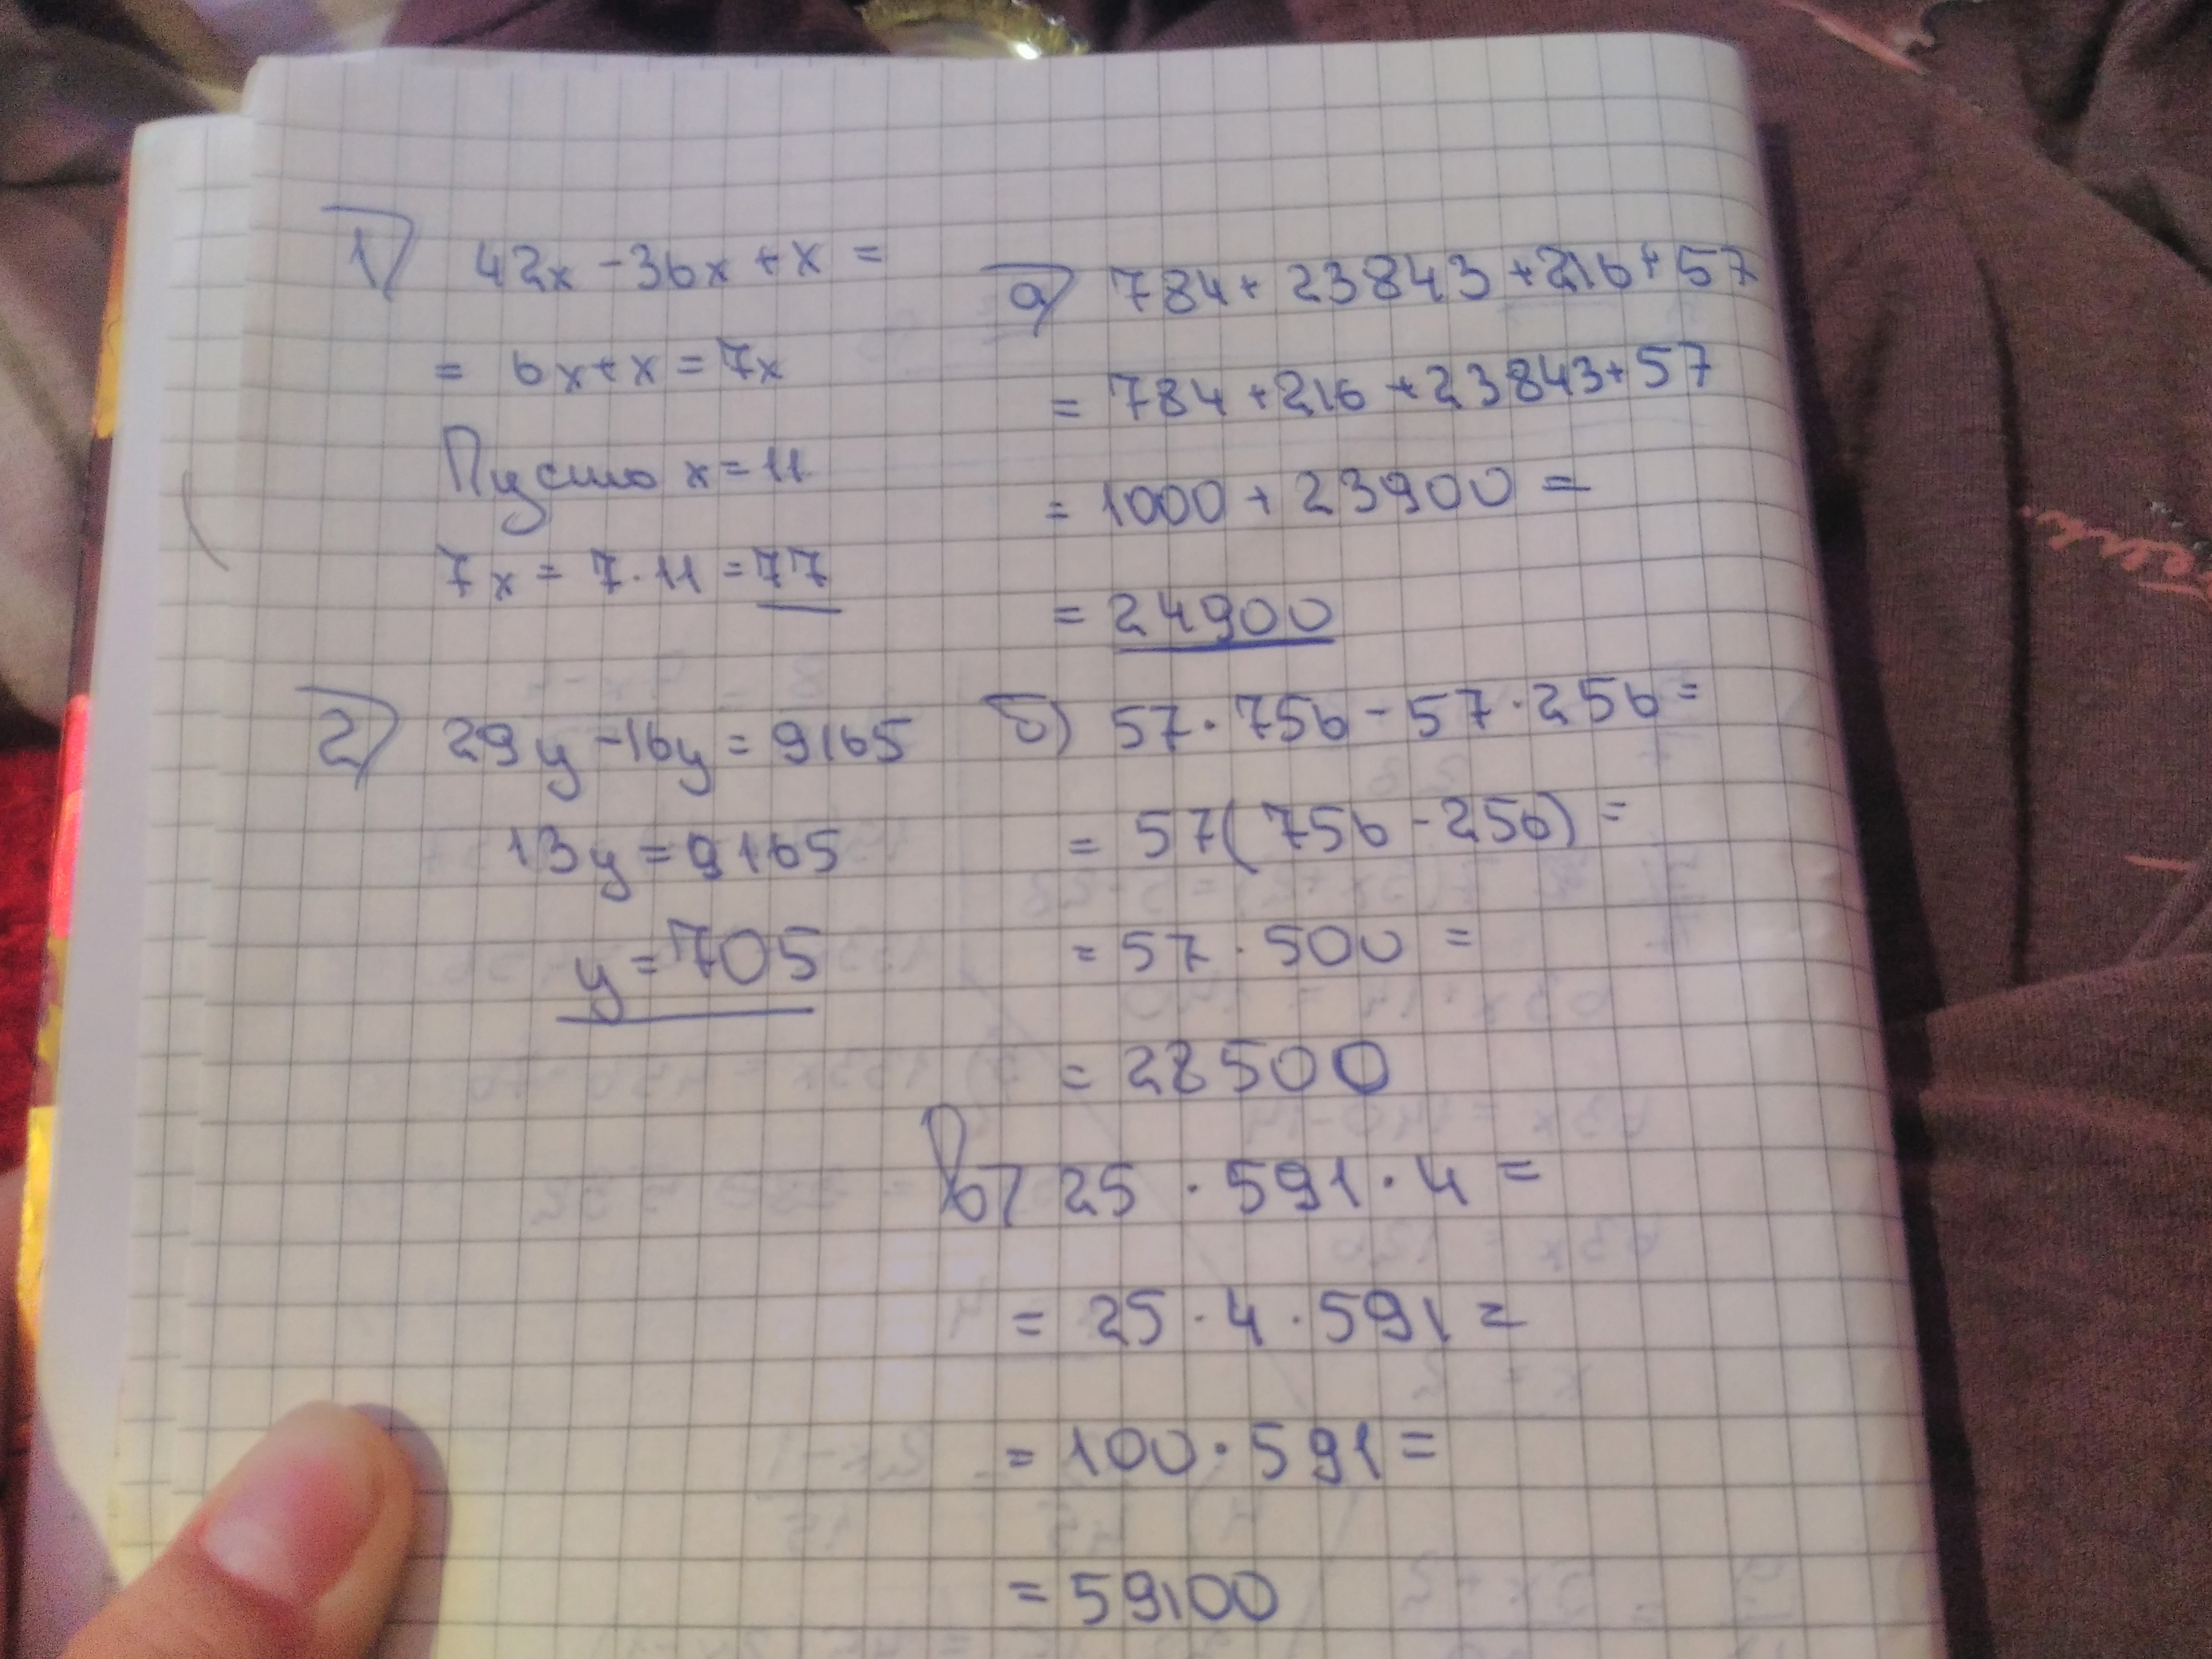 1) 42x - 36x + x =
= 6x + x = 7x
Пусть x = 11
7x = 7 · 11 = 77
2) 29y - 16y = 9165
13y = 9165
y = 705
а) 784 + 23843 + 216 + 57
= 784 + 216 + 23843 + 57
= 1000 + 23900 =
= 24900
б) 57 · 756 - 57 · 256 =
= 57(756 - 256) =
= 57 · 500 =
= 28500
в) 25 · 591 · 4 =
= 25 · 4 · 591 =
= 100 · 591 =
= 59100